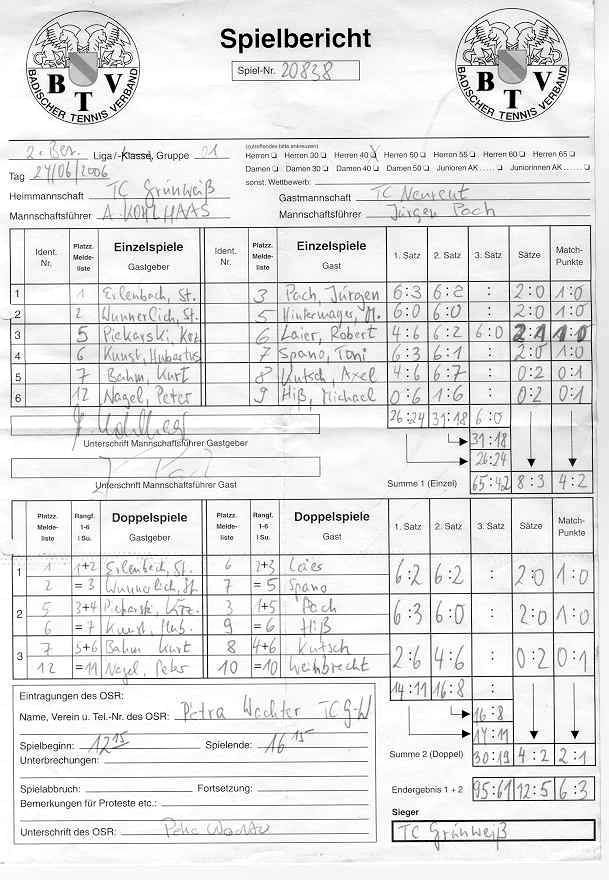 BADISCHER TENNIS VERBAND
BTV
Spielbericht
Spiel-Nr. 20838
BADISCHER TENNIS VERBAND
BTV
2. Bez. Liga/-Klasse, Gruppe 01
(zutreffendes bitte ankreuzen)
Herren ❏ Herren 30 ❏ Herren 40 ❏ Herren 50 ❏ Herren 55 ❏ Herren 60 ❏ Herren 65 ❏
Tag 24/06/2006
Damen ❏ Damen 30 ❏ Damen 40 ❏ Damen 50 ❏ Junioren AK ..... ❏ Juniorinnen AK ...... ❏
sonst. Wettbewerb:
Heimmannschaft TC Grünweiß Gastmannschaft TC Neureut
Mannschaftsführer A. KOHLHAAS Mannschaftsführer Jürgen Poch
Ident. Nr. Platzz. Melde- liste Einzelspiele Gastgeber Ident. Nr. Platzz. Melde- liste Einzelspiele Gast 1. Satz 2. Satz 3. Satz Sätze Match- Punkte
1 1 Erlenbach, St. 3 Poch, Jürgen 6:3 6:2 : 2:0 1:0
2 2 Wunnerlich, St. 5 Hintermayer, M. 6:0 6:0 : 2:0 1:0
3 5 Piekarski, Krz 6 Laier, Robert 4:6 6:2 6:0 2:1 1:0
4 6 Kunst, Hubertus 7 Spano, Toni 6:3 6:1 : 2:0 1:0
5 7 Bahm, Kurt 8 Kutsch, Axel 4:6 6:7 : 0:2 0:1
6 12 Nagel, Peter 9 Hiß, Michael 0:6 1:6 : 0:2 0:1
26:24 31:18 6:0
Unterschrift Mannschaftsführer Gastgeber
31:18
26:24
Unterschrift Mannschaftsführer Gast
Summe 1 (Einzel) 65:42 8:3 4:2
Platzz. Melde- liste Rangf. 1-6 I Su. Doppelspiele Gastgeber Platzz. Melde- liste Rangf. 1-6 I Su. Doppelspiele Gast 1. Satz 2. Satz 3. Satz Sätze Match- Punkte
1 1 1+2 Erlenbach, St. 6 2+3 Laier 6:2 6:2 : 2:0 1:0
2 =3 Wunnerlich, St. 7 =5 Spano
2 5 3+4 Piekarski, Krz. 3 1+5 Poch 6:3 6:0 : 2:0 1:0
6 =7 Kunst, Hub. 9 =6 Hiß
3 7 5+6 Bahm Kurt 8 4+6 Kutsch 2:6 4:6 : 0:2 0:1
12 =11 Nagel, Peter 10 =10 Weinbrecht
14:11 16:8 :
Eintragungen des OSR:
Name, Verein u. Tel.-Nr. des OSR: Petra Wachter TC G-W
16:8
14:11
Spielbeginn: 12 15 Spielende: 16 15
Summe 2 (Doppel) 30:19 4:2 2:1
Unterbrechungen:
Spielabbruch: Fortsetzung:
Endergebnis 1 + 2 95:61 12:5 6:3
Bemerkungen für Proteste etc.:
Sieger
TC Grünweiß
Unterschrift des OSR: Petra Wachter